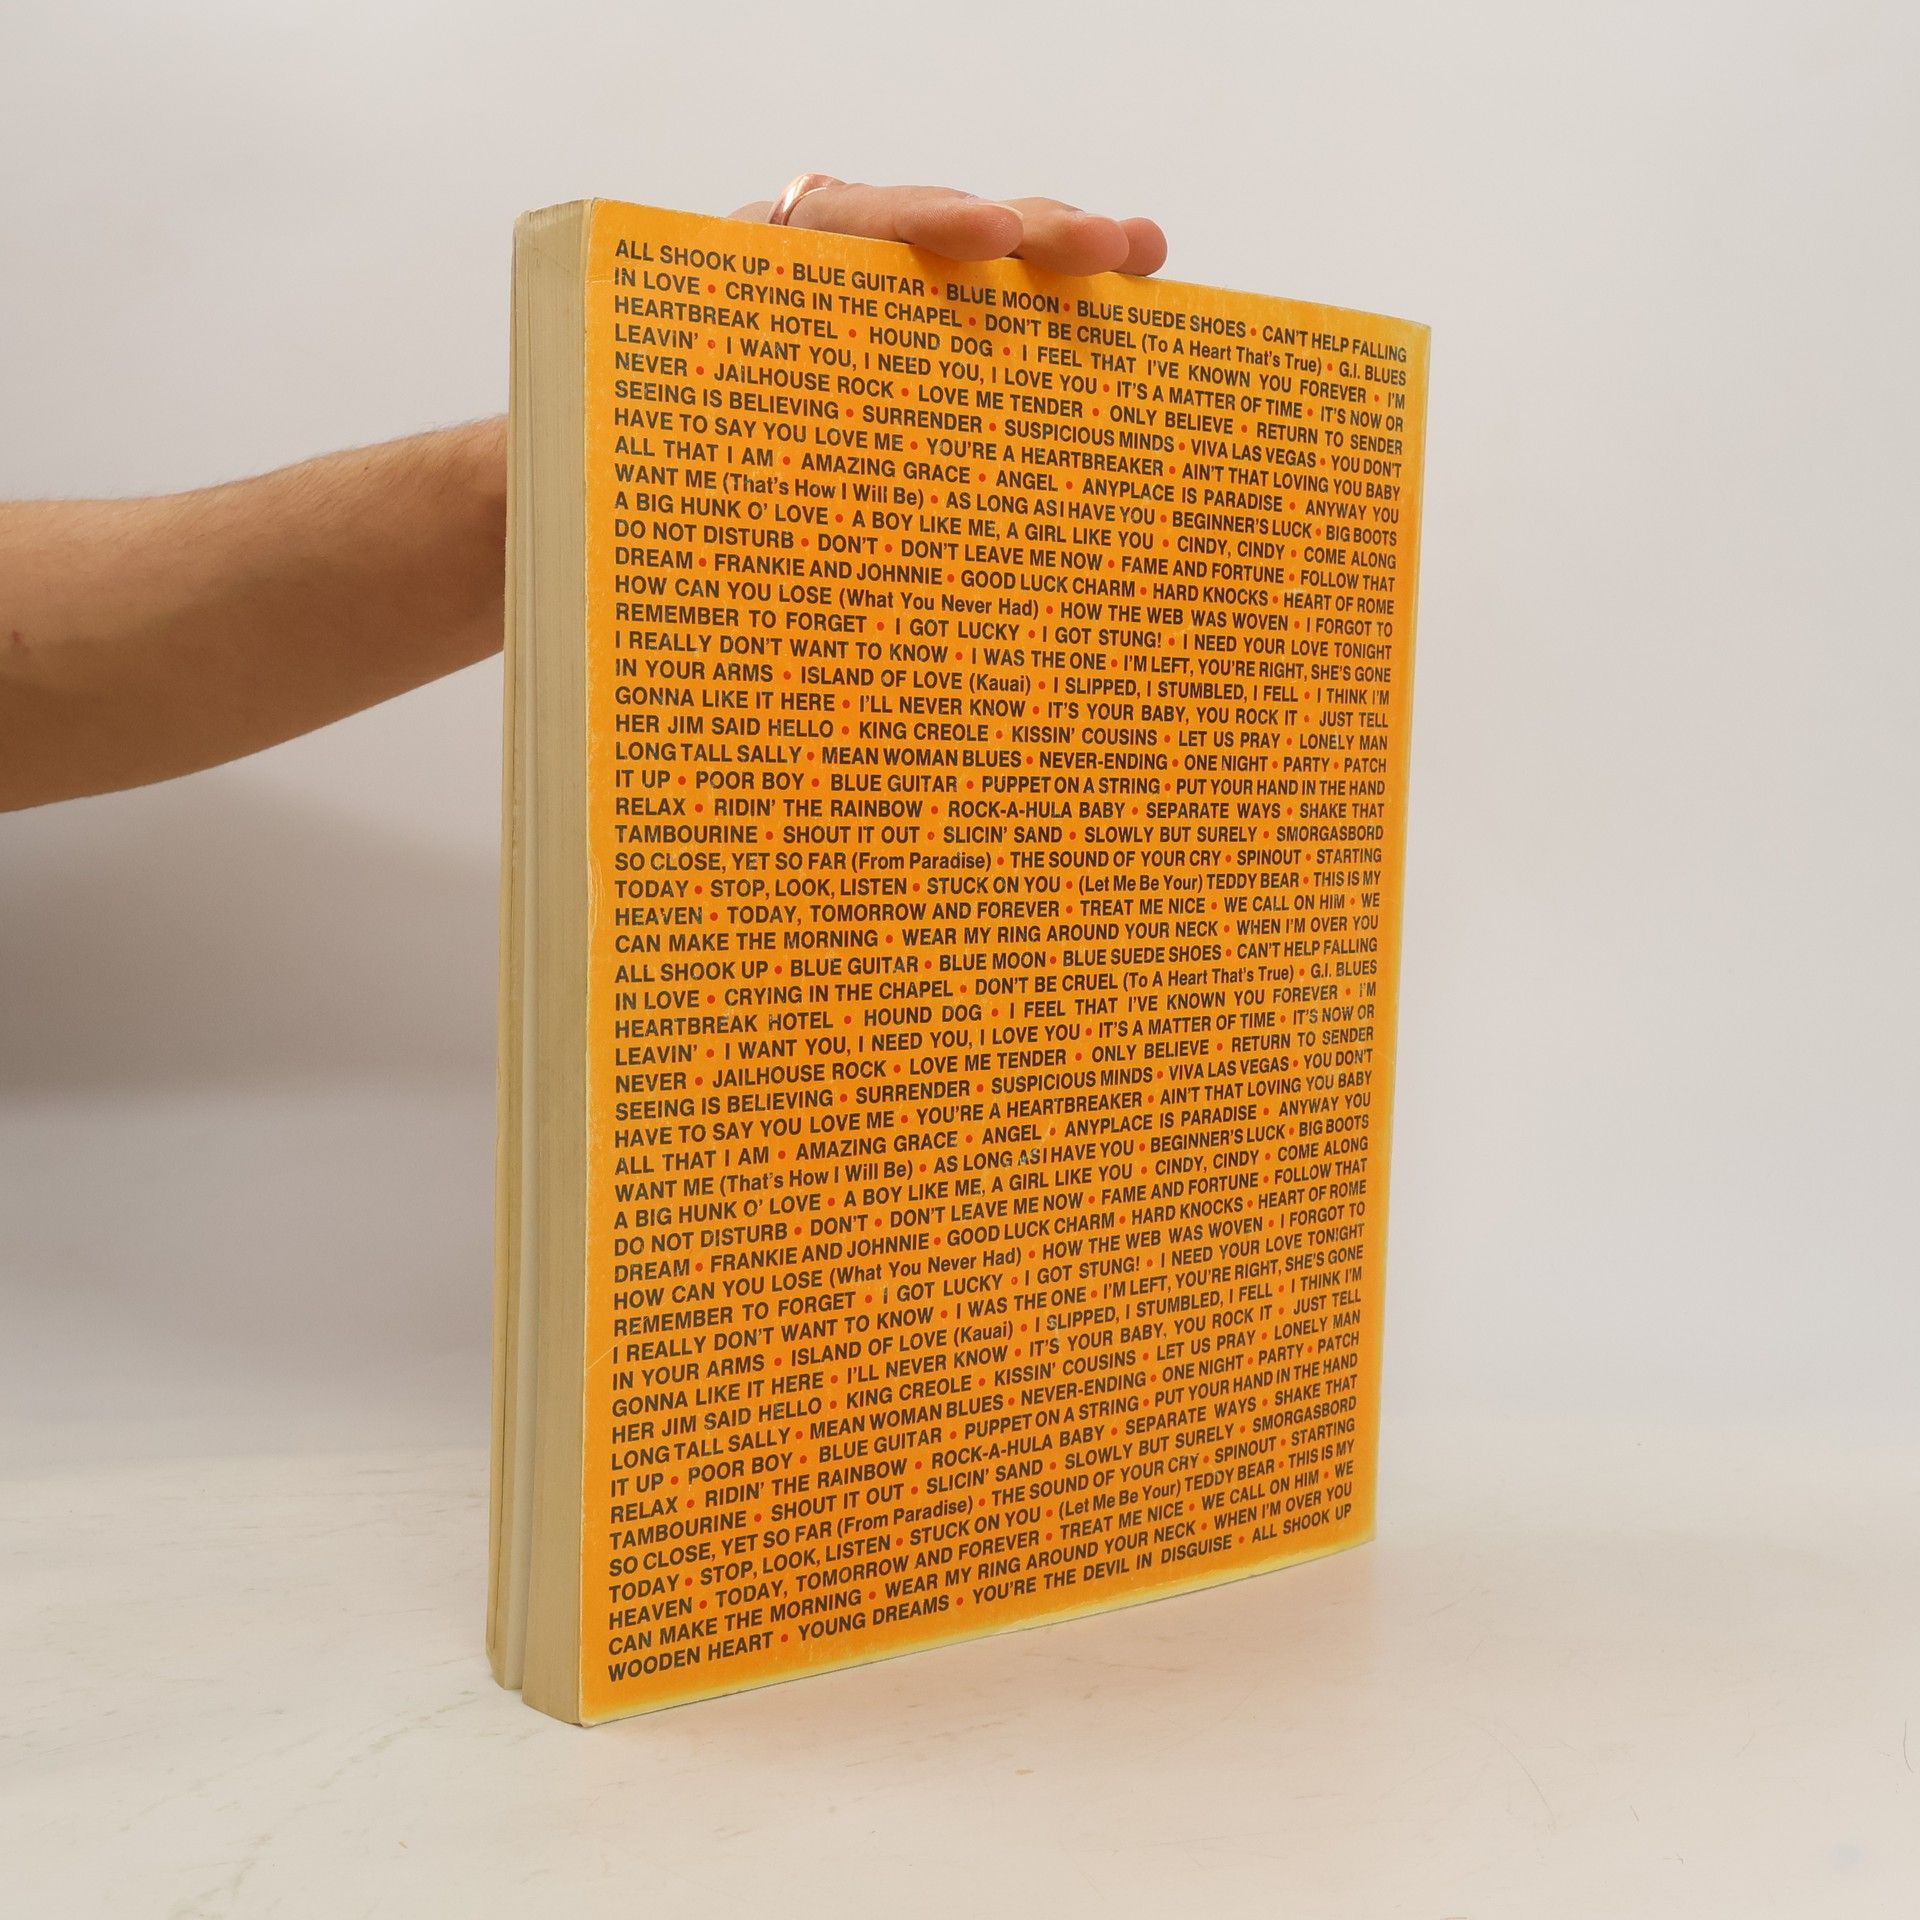 ALL SHOOK UP • BLUE GUITAR • BLUE MOON • BLUE SUEDE SHOES • CAN'T HELP FALLING
IN LOVE • CRYING IN THE CHAPEL • DON'T BE CRUEL (To A Heart That's True) • G.I. BLUES
HEARTBREAK HOTEL • HOUND DOG • I FEEL THAT I'VE KNOWN YOU FOREVER • I'M
LEAVIN' • I WANT YOU, I NEED YOU, I LOVE YOU • IT'S A MATTER OF TIME • IT'S NOW OR
NEVER • JAILHOUSE ROCK • LOVE ME TENDER • ONLY BELIEVE • RETURN TO SENDER
SEEING IS BELIEVING • SURRENDER • SUSPICIOUS MINDS • VIVA LAS VEGAS • YOU DON'T
HAVE TO SAY YOU LOVE ME • YOU'RE A HEARTBREAKER • AIN'T THAT LOVING YOU BABY
ALL THAT I AM • AMAZING GRACE • ANGEL • ANYPLACE IS PARADISE • ANYWAY YOU
WANT ME (That's How I Will Be) • AS LONG AS I HAVE YOU • BEGINNER'S LUCK • BIG BOOTS
A BIG HUNK O' LOVE • A BOY LIKE ME, A GIRL LIKE YOU • CINDY, CINDY • COME ALONG
DO NOT DISTURB • DON'T • DON'T LEAVE ME NOW • FAME AND FORTUNE • FOLLOW THAT
DREAM • FRANKIE AND JOHNNIE • GOOD LUCK CHARM • HARD KNOCKS • HEART OF ROME
HOW CAN YOU LOSE (What You Never Had) • HOW THE WEB WAS WOVEN • I FORGOT TO
REMEMBER TO FORGET • I GOT LUCKY • I GOT STUNG! • I NEED YOUR LOVE TONIGHT
I REALLY DON'T WANT TO KNOW • I WAS THE ONE • I'M LEFT, YOU'RE RIGHT, SHE'S GONE
IN YOUR ARMS • ISLAND OF LOVE (Kauai) • I SLIPPED, I STUMBLED, I FELL • I THINK I'M
GONNA LIKE IT HERE • I'LL NEVER KNOW • IT'S YOUR BABY, YOU ROCK IT • JUST TELL
HER JIM SAID HELLO • KING CREOLE • KISSIN' COUSINS • LET US PRAY • LONELY MAN
LONG TALL SALLY • MEAN WOMAN BLUES • NEVER-ENDING • ONE NIGHT • PARTY • PATCH
IT UP • POOR BOY • BLUE GUITAR • PUPPET ON A STRING • PUT YOUR HAND IN THE HAND
RELAX • RIDIN' THE RAINBOW • ROCK-A-HULA BABY • SEPARATE WAYS • SHAKE THAT
TAMBOURINE • SHOUT IT OUT • SLICIN' SAND • SLOWLY BUT SURELY • SMORGASBORD
SO CLOSE, YET SO FAR (From Paradise) • THE SOUND OF YOUR CRY • SPINOUT • STARTING
TODAY • STOP, LOOK, LISTEN • STUCK ON YOU • (Let Me Be Your) TEDDY BEAR • THIS IS MY
HEAVEN • TODAY, TOMORROW AND FOREVER • TREAT ME NICE • WE CALL ON HIM • WE
CAN MAKE THE MORNING • WEAR MY RING AROUND YOUR NECK • WHEN I'M OVER YOU
ALL SHOOK UP • BLUE GUITAR • BLUE MOON • BLUE SUEDE SHOES • CAN'T HELP FALLING
IN LOVE • CRYING IN THE CHAPEL • DON'T BE CRUEL (To A Heart That's True) • G.I. BLUES
HEARTBREAK HOTEL • HOUND DOG • I FEEL THAT I'VE KNOWN YOU FOREVER • I'M
LEAVIN' • I WANT YOU, I NEED YOU, I LOVE YOU • IT'S A MATTER OF TIME • IT'S NOW OR
NEVER • JAILHOUSE ROCK • LOVE ME TENDER • ONLY BELIEVE • RETURN TO SENDER
SEEING IS BELIEVING • SURRENDER • SUSPICIOUS MINDS • VIVA LAS VEGAS • YOU DON'T
HAVE TO SAY YOU LOVE ME • YOU'RE A HEARTBREAKER • AIN'T THAT LOVING YOU BABY
ALL THAT I AM • AMAZING GRACE • ANGEL • ANYPLACE IS PARADISE • ANYWAY YOU
WANT ME (That's How I Will Be) • AS LONG AS I HAVE YOU • BEGINNER'S LUCK • BIG BOOTS
A BIG HUNK O' LOVE • A BOY LIKE ME, A GIRL LIKE YOU • CINDY, CINDY • COME ALONG
DO NOT DISTURB • DON'T • DON'T LEAVE ME NOW • FAME AND FORTUNE • FOLLOW THAT
DREAM • FRANKIE AND JOHNNIE • GOOD LUCK CHARM • HARD KNOCKS • HEART OF ROME
HOW CAN YOU LOSE (What You Never Had) • HOW THE WEB WAS WOVEN • I FORGOT TO
REMEMBER TO FORGET • I GOT LUCKY • I GOT STUNG! • I NEED YOUR LOVE TONIGHT
I REALLY DON'T WANT TO KNOW • I WAS THE ONE • I'M LEFT, YOU'RE RIGHT, SHE'S GONE
IN YOUR ARMS • ISLAND OF LOVE (Kauai) • I SLIPPED, I STUMBLED, I FELL • I THINK I'M
GONNA LIKE IT HERE • I'LL NEVER KNOW • IT'S YOUR BABY, YOU ROCK IT • JUST TELL
HER JIM SAID HELLO • KING CREOLE • KISSIN' COUSINS • LET US PRAY • LONELY MAN
LONG TALL SALLY • MEAN WOMAN BLUES • NEVER-ENDING • ONE NIGHT • PARTY • PATCH
IT UP • POOR BOY • BLUE GUITAR • PUPPET ON A STRING • PUT YOUR HAND IN THE HAND
RELAX • RIDIN' THE RAINBOW • ROCK-A-HULA BABY • SEPARATE WAYS • SHAKE THAT
TAMBOURINE • SHOUT IT OUT • SLICIN' SAND • SLOWLY BUT SURELY • SMORGASBORD
SO CLOSE, YET SO FAR (From Paradise) • THE SOUND OF YOUR CRY • SPINOUT • STARTING
TODAY • STOP, LOOK, LISTEN • STUCK ON YOU • (Let Me Be Your) TEDDY BEAR • THIS IS MY
HEAVEN • TODAY, TOMORROW AND FOREVER • TREAT ME NICE • WE CALL ON HIM • WE
CAN MAKE THE MORNING • WEAR MY RING AROUND YOUR NECK • WHEN I'M OVER YOU
WOODEN HEART • YOUNG DREAMS • YOU'RE THE DEVIL IN DISGUISE • ALL SHOOK UP